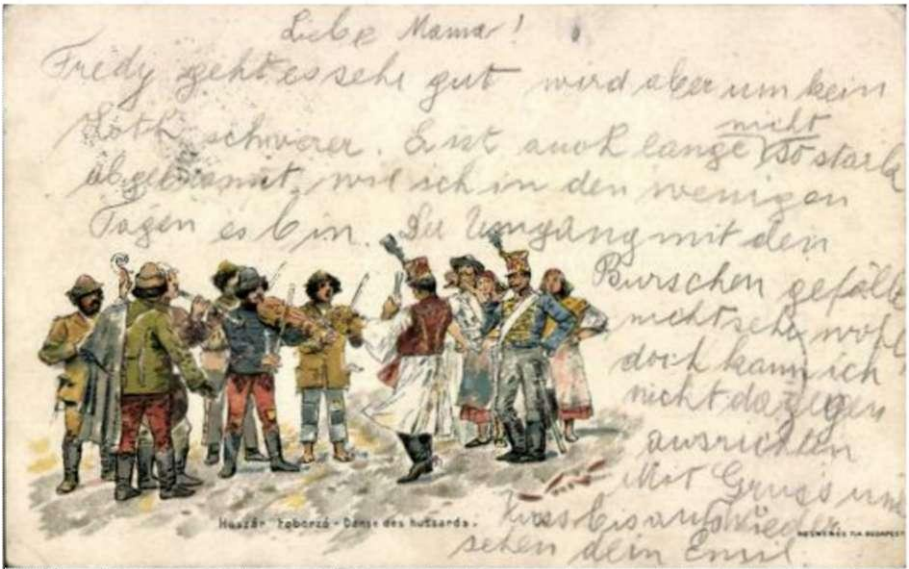 Liebe Mama!
Fredy geht es sehr gut wird aber um kein
Loth schwerer. Er ist auch lange nicht so stark
abgebrannt, wie ich in den wenigen
Tagen es bin. Der Umgang mit den
Burschen gefällt
nicht sehr wohl
doch kann ich
nicht dagegen
ausrichten
Mit Gruss und
Kuss bis auf Wieder
sehen dein Emil
Huszár toborzó - Danse des hussards.
BUDAPEST